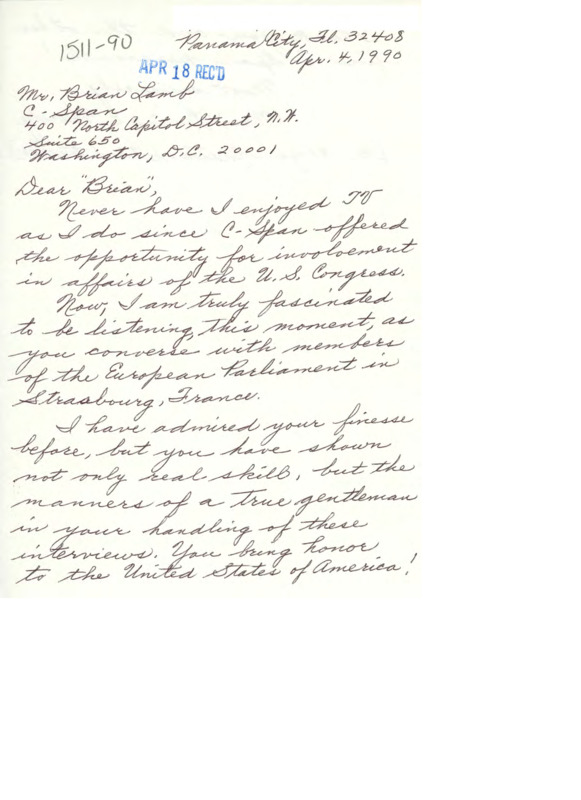 1511-90
Panama City, Fl. 32408
Apr. 4, 1990
APR 18 REC'D
Mr. Brian Lamb
C-Span
400 North Capitol Street, N.W.
Suite 650
Washington, D.C. 20001
Dear "Brian",
Never have I enjoyed TV
as I do since C-Span offered
the opportunity for involvement
in affairs of the U.S. Congress.
Now, I am truly fascinated
to be listening, this moment, as
you converse with members
of the European Parliament in
Strasbourg, France.
I have admired your finesse
before, but you have shown
not only real skill, but the
manners of a true gentleman
in your handling of these
interviews. You bring honor
to the United States of America!